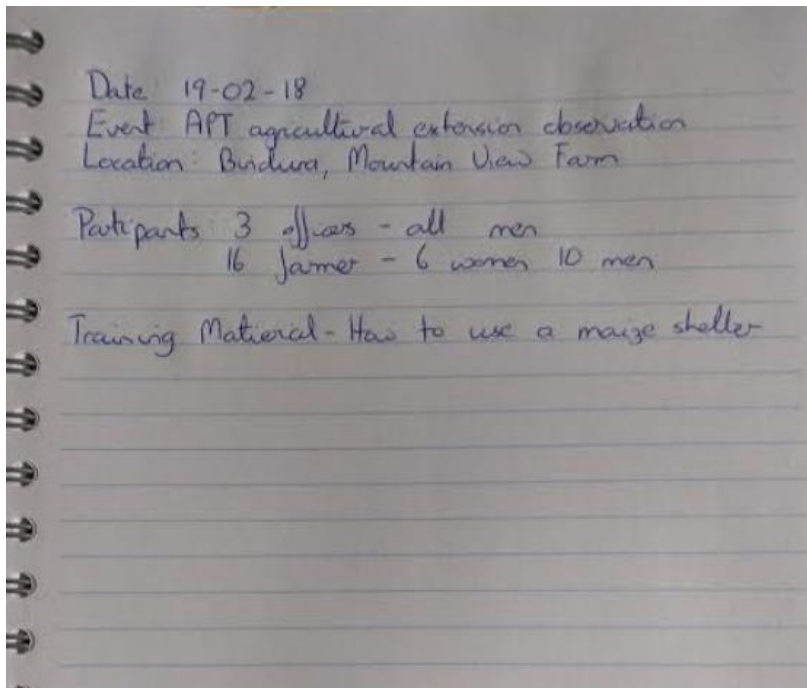 Date: 19-02-18
Event: APT agricultural extension observation
Location: Bindura, Mountain View Farm
Participants: 3 officers - all men
16 farmer - 6 women 10 men
Training Material - How to use a maize sheller